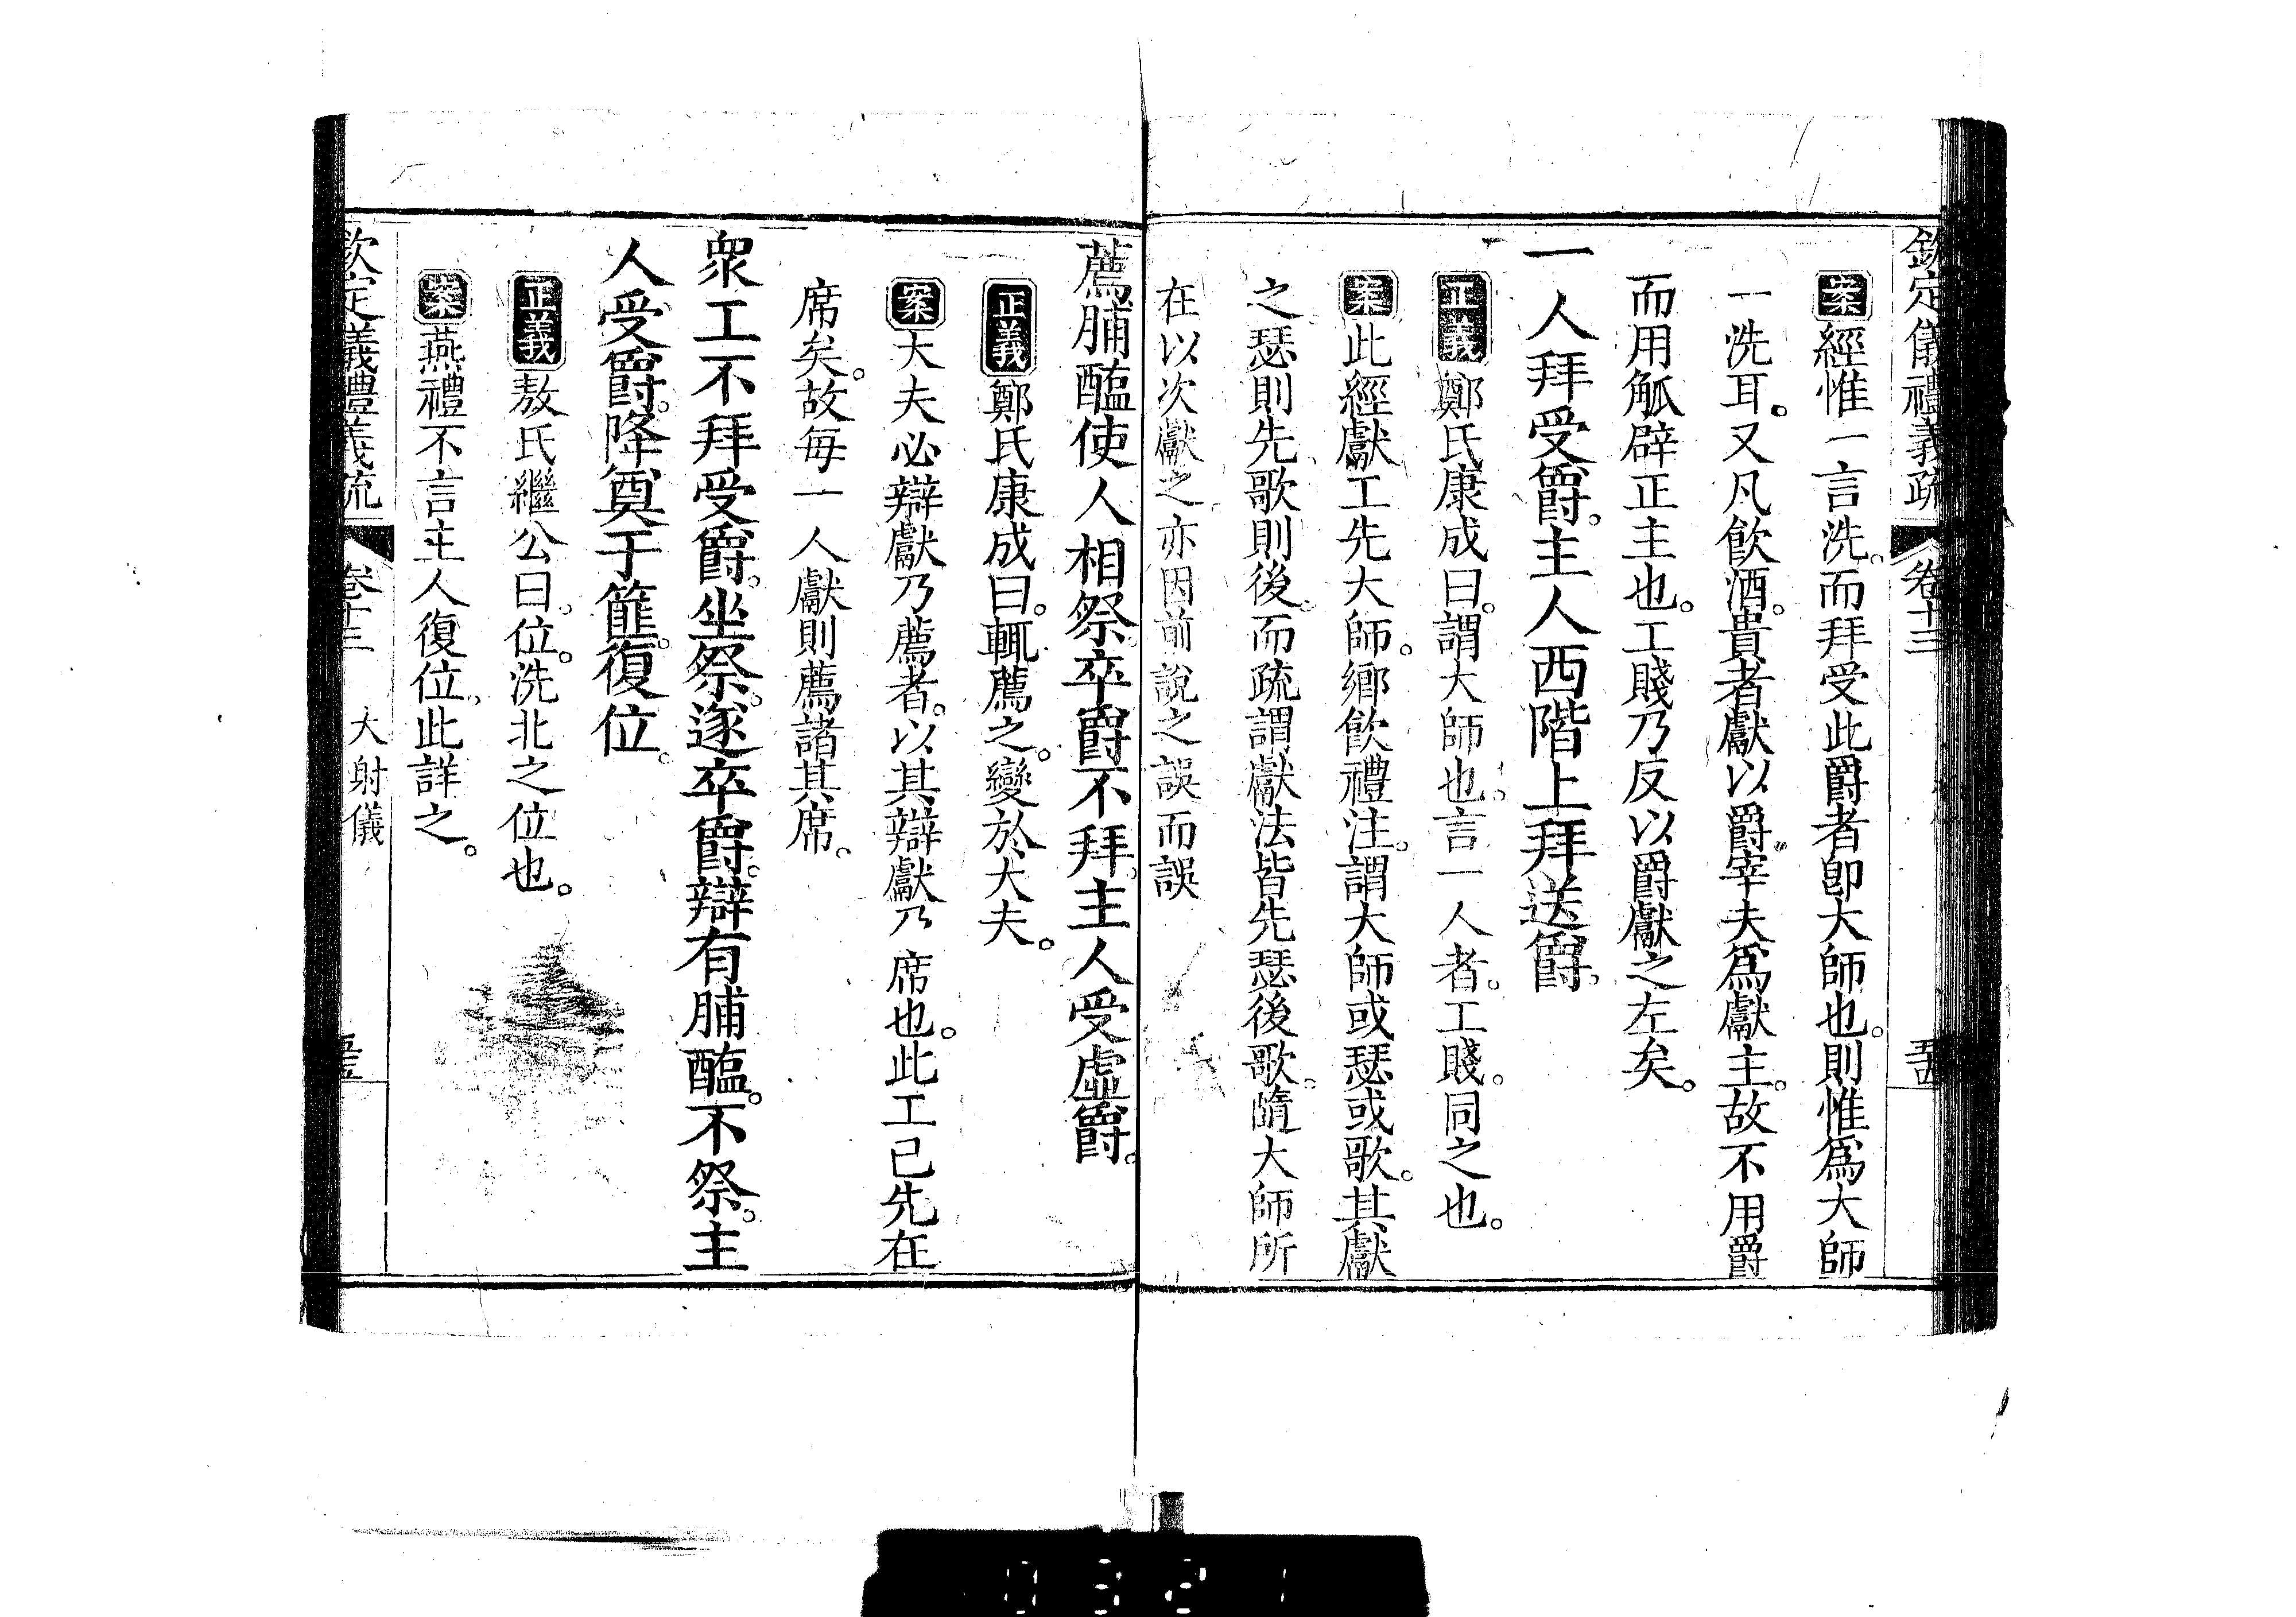 欽定儀禮義疏 卷十三 五十四
案經惟一言洗。而拜受此爵者卽大師也。則惟爲大師
一洗耳。又凡飮酒。貴者獻以爵。宰夫爲獻主。故不用爵
而用觚辟正主也。工賤乃反以爵獻之左矣。
一人拜受爵。主人西階上拜送爵。
正義鄭氏康成曰。謂大師也。言一人者。工賤。同之也。
案此經獻工先大師。鄉飮禮注。謂大師或瑟或歌。其獻
之瑟則先。歌則後。而疏謂獻法皆先瑟後歌。隨大師所
在以次獻之。亦因前說之誤而誤
薦脯醢使人相祭。卒爵不拜。主人受虛爵。
正義鄭氏康成曰。輒薦之。變於大夫。
案大夫必辯獻乃薦者。以其辯獻乃席也。此工已先在
席矣。故每一人獻則薦諸其席。
眾工不拜受爵。坐祭。遂卒爵。辯有脯醢。不祭。主
人受爵。降奠于篚。復位。
正義敖氏繼公曰。位。洗北之位也。
案燕禮不言主人復位。此詳之。
欽定義禮義疏 卷十三 大射儀 五十五
0321